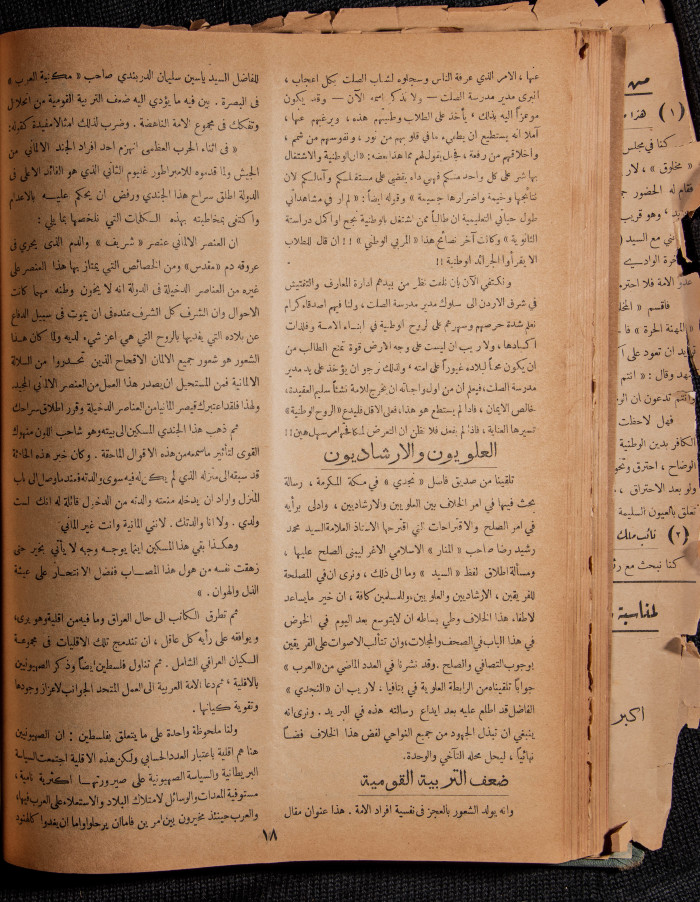 عنها ، الامر الذي عرفة الناس وسجلوه لشباب الصلت بكل اعجاب ،
انبرى مدير مدرسة الصلت — ولا يذكر اسمه الآن — وقد يكون
موعزاً اليه بذلك ‘ يأخذ على الطلاب وطنيتهم هذه ، ويرغبهم عنها ،
آملا انه يستطيع ان يطفيء ما في قلوبهم من نور ، ونفوسهم من شمم ،
واخلاقهم من رفعة ، يقول لهم مما هذا معناه : « ان الوطنية والاشتغال
بها شر على كل واحد منكم فهي داء يقضي على مستقبلكم وآمالكم لان
نتائجها وخيمة واضرارها جسيمة » وقوله ايضاً : « لم ار في مشاهداتي
طول حياتي التعليمية ان طالباً ممن اشتغل بالوطنية نجح او اكمل دراسته
الثانوية » وكانت آخر نصائح هذا « المربي الوطني » !! ان قال للطلاب
الا يقرأوا الجرائد الوطنية !!
ونكتفي الآن بان نلفت نظر من بيدهم ادارة المعارف والتفتيش
في شرق الاردن الى سلوك مدير مدرسة الصلت ، ولنا فيهم اصدقاء كرام
نعلم شدة حرصهم وسهرهم على الروح الوطنية في ابناء الامة وفلذات
اكبادها ، ولا ريب ان ليست على وجه الارض قوة تمنع الطالب من
ان يكون محباً لبلاده غيوراً على امته ‘ ولذلك نرجو ان يؤخذ على يد مدير
مدرسة الصلت ، فيعلم ان من اول واجباته ان يخرج للامة نشئاً سليم العقيدة ،
خالص الايمان ، فاذا لم يستطع هو هذا ، فعلى الاقل فليدع « الروح الوطنية »
تسيرها العناية ، فاذا لم يفعل فلا نظن ان التعرض لمكافحة امر سهل هين !!
العلويون والارشاديون
تلقينا من صديق فاضل « نجدي » في مكة المكرمة ، رسالة
بحث فيها في امر الخلاف بين العلويين والارشاديين ، وادلى برأيه
في امر الصلح والاقتراحات التي اقترحها الاستاذ العلامة السيد محمد
رشيد رضا صاحب « المنار » الاسلامي الاغر ليبنى الصلح عليها ،
ومسألة اطلاق لفظ « السيد » وما الى ذلك ، ونرى ان في المصلحة
للفريقين ، الارشاديين والعلويين ، وللمسلمين كافة ، ان خير ما يساعد
لاطفاء هذا الخلاف وطي بساطه ان لا يتوسع بعد اليوم في الخوض
في هذا الباب في الصحف والمجلات ، وان تتألب الاصوات على الفريقين
بوجوب التصافي والصلح . وقد نشرنا في العدد الماضي من « العرب »
جواباً تلقيناه من الرابطة العلوية في بتافيا ، لا ريب ان « النجدي »
الفاضل قد اطلع عليه بعد ايداع رسالته هذه في البريد . ونرى انه
ينبغي ان تبذل الجهود من جميع النواحي لفض هذا الخلاف فضاً
نهائياً ، ليحل محله التآخي والوحدة .
ضعف التربية القومية
وانه يولد الشعور بالعجز في نفسية افراد الامة . هذا عنوان مقال
للفاضل السيد ياسين سليمان الدربندي صاحب « مكتبة العرب »
في البصرة . بين فيه ما يؤدي اليه ضعف التربية القومية من انحلال
وتفكك في مجموع الامة الناهضة . وضرب لذلك امثالا مفيدة كقوله :
« في اثناء الحرب العظمى انهزم احد افراد الجند الالماني من
الجيش ولما قدموه للامبراطور غليوم الثاني الذي هو القائد الاعلى في
الدولة اطلق سراح هذا الجندي ورفض ان يحكم عليه بالاعدام
واكتفى بمخاطبته بهذه الكلمات التي نلخصها بما يلي :
ان العنصر الالماني عنصر « شريف » والدم الذي يجري في
عروقه دم « مقدس » ومن الخصائص التي يمتاز بها هذا العنصر على
غيره من العناصر الدخيلة في الدولة انه لا يخون وطنه مهما كانت
الاحوال وان الشرف كل الشرف عنده في ان يموت في سبيل الدفاع
عن بلاده التي يفديها بالروح التي هي اعز شيء لديه ولما كان هذا
الشعور هو شعور جميع الالمان الاقحاح الذين تحدروا من السلالة
الالمانية فمن المستحيل ان يصدر هذا العمل من العنصر الالماني المجيد
ولهذا فلقد اعتبرك قيصر المانيا من العناصر الدخيلة وقرر اطلاق سراحك
ثم ذهب هذا الجندي المسكين الى بيته وهو شاحب اللون منهوك
القوى لتأثير ما سمعه من هذه الاقوال الماحقة . وكان خبر هذه الحادثة
قد سبقه الى منزله الذي لم يكن له فيه سوى والدته فعندما وصل الى باب
المنزل واراد ان يدخله منعته والدته من الدخول قائلة له انك لست
ولدي . ولا انا والدتك . لانني المانية وانت غير الماني .
وهكذا بقي هذا المسكين اينما يوجه وجهه لا يأتي بخير حتى
زهقت نفسه من هول هذا المصاب ففضل الانتحار على عيشة
الذل والهوان . »
ثم تطرق الكاتب الى حال العراق وما فيه من اقلية وهو يرى ،
ويوافقه على رأيه كل عاقل ، ان تندمج تلك الاقليات في مجموعة
السكيان العراقي الشامل . ثم تناول فلسطين ايضاً وذكر الصهيونيين
بالاقلية ‘ ثم دعا الامة العربية الى العمل المتحد الجوانب لاعزاز وجودها
وتقوية كيانها .
ولنا ملحوظة واحدة على ما يتعلق بفلسطين : ان الصهيونيين
هنا هم اقلية باعتبار العدد الحسابي ولكن هذه الاقلية اجتمعت السياسة
البريطانية والسياسة الصهيونية على صيرورتها اكثرية نامية ،
مستوفية المعدات والوسائل لامتلاك البلاد والاستعلاء على العرب فيها ،
والعرب حينئذ مخيرون بين امرين فاما ان يرحلوا واما ان يغدوا كالهنود
١٨
من
( ١ ) هذا
كنا في مجلس
« مخلوق » ، لار
فقام له الحضور
، وهو قريب
مع السيد
الامة فلا
فاقسم «
« المهنة الحرة »
تريد ان تعود على
وقال : « انتم
تدعون ان
فهل لاحظت
الكافر بدين الوطنية
الوضاح ، احترق
ولو بعد الاحتراق ،
تعلق بالعيون السليمة
( ٢ ) نائب ملك
كنا نبحث مع
لمناسبة
اكبر